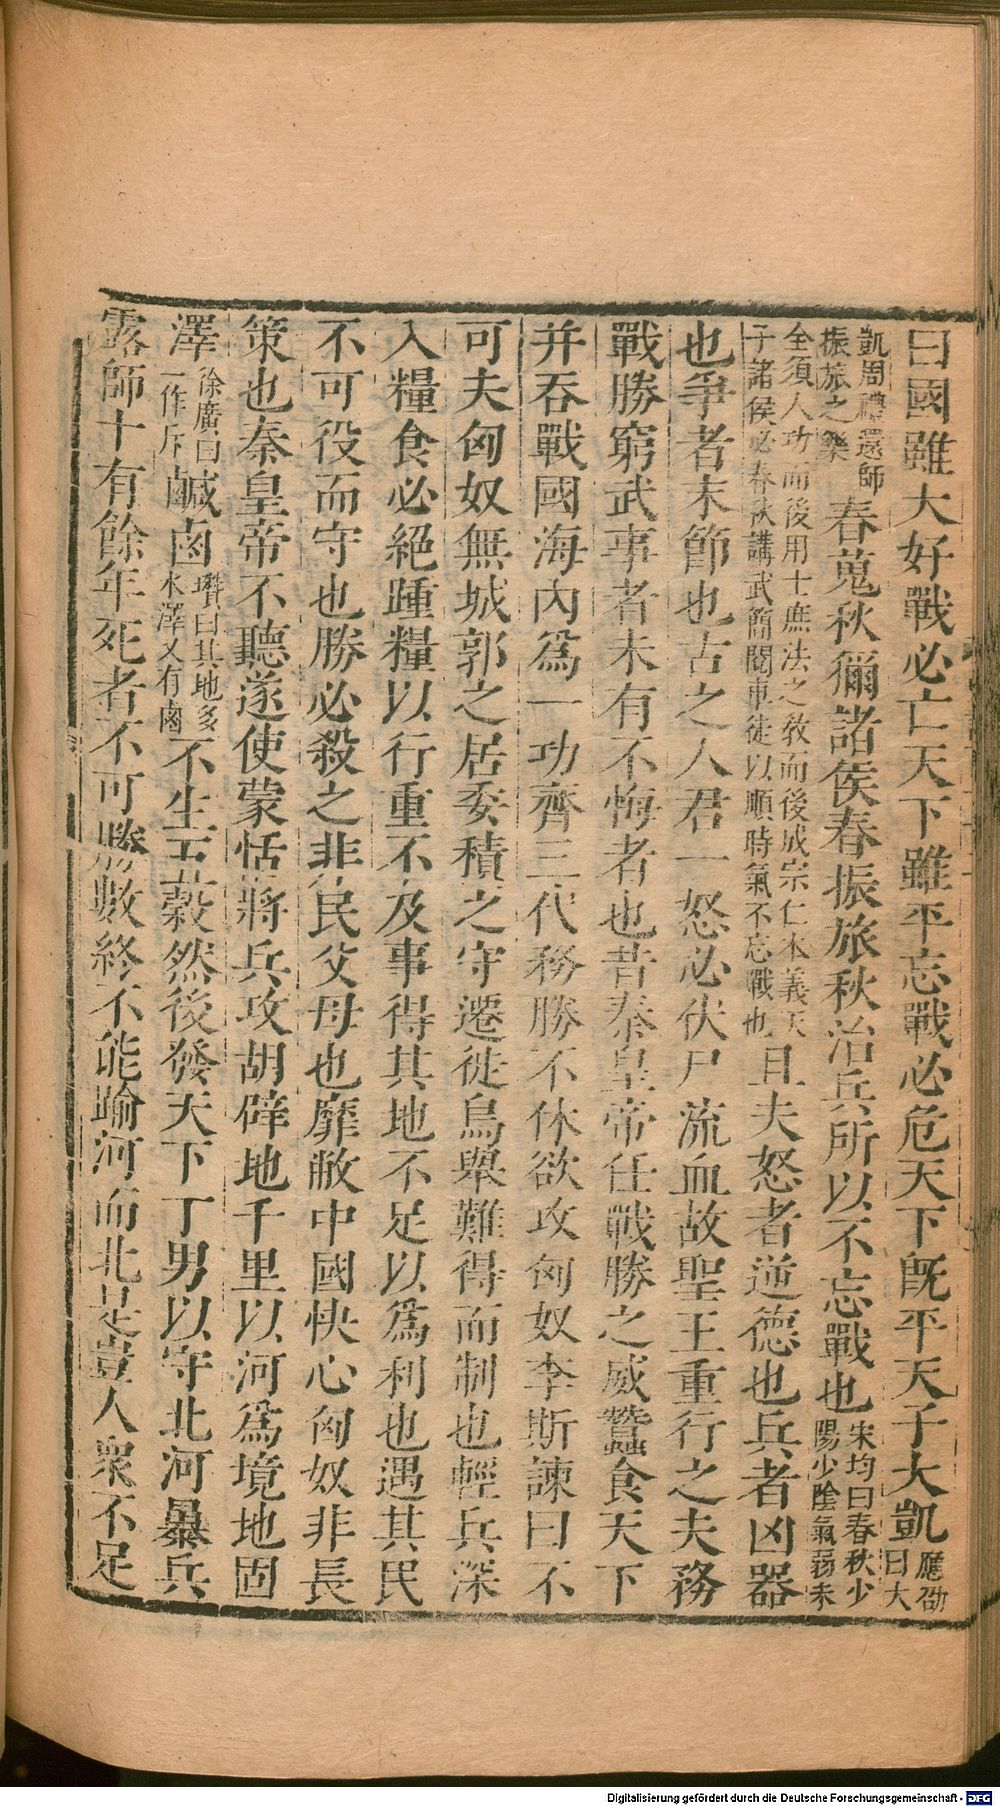 曰國雖大好戰必亡天下雖平忘戰必危天下旣平天子大凱應劭曰大
凱周禮還師振旅之樂春蒐秋獮諸侯春振旅秋治兵所以不忘戰也宋均曰春秋少陽少陰氣弱未
全須人功而後用士庶法之教而後成宗仁本義天子諸侯必春秋講武簡閱車徒以順時氣不忘戰也且夫怒者逆德也兵者凶器
也爭者末節也古之人君一怒必伏尸流血故聖王重行之夫務
戰勝窮武事者未有不悔者也昔秦皇帝任戰勝之威蠶食天下
并吞戰國海內爲一功齊三代務勝不休欲攻匈奴李斯諫曰不
可夫匈奴無城郭之居委積之守遷徙鳥舉難得而制也輕兵深
入糧食必絕踵糧以行重不及事得其地不足以爲利也遇其民
不可役而守也勝必殺之非民父母也靡敝中國快心匈奴非長
策也秦皇帝不聽遂使蒙恬將兵攻胡辟地千里以河爲境地固
澤徐廣曰一作斥鹹鹵瓚曰其地多水澤又有鹵不生五穀然後發天下丁男以守北河暴兵
露師十有餘年死者不可勝數終不能踰河而北是豈人衆不足
Digitalisierung gefördert durch die Deutsche Forschungsgemeinschaft - DFG